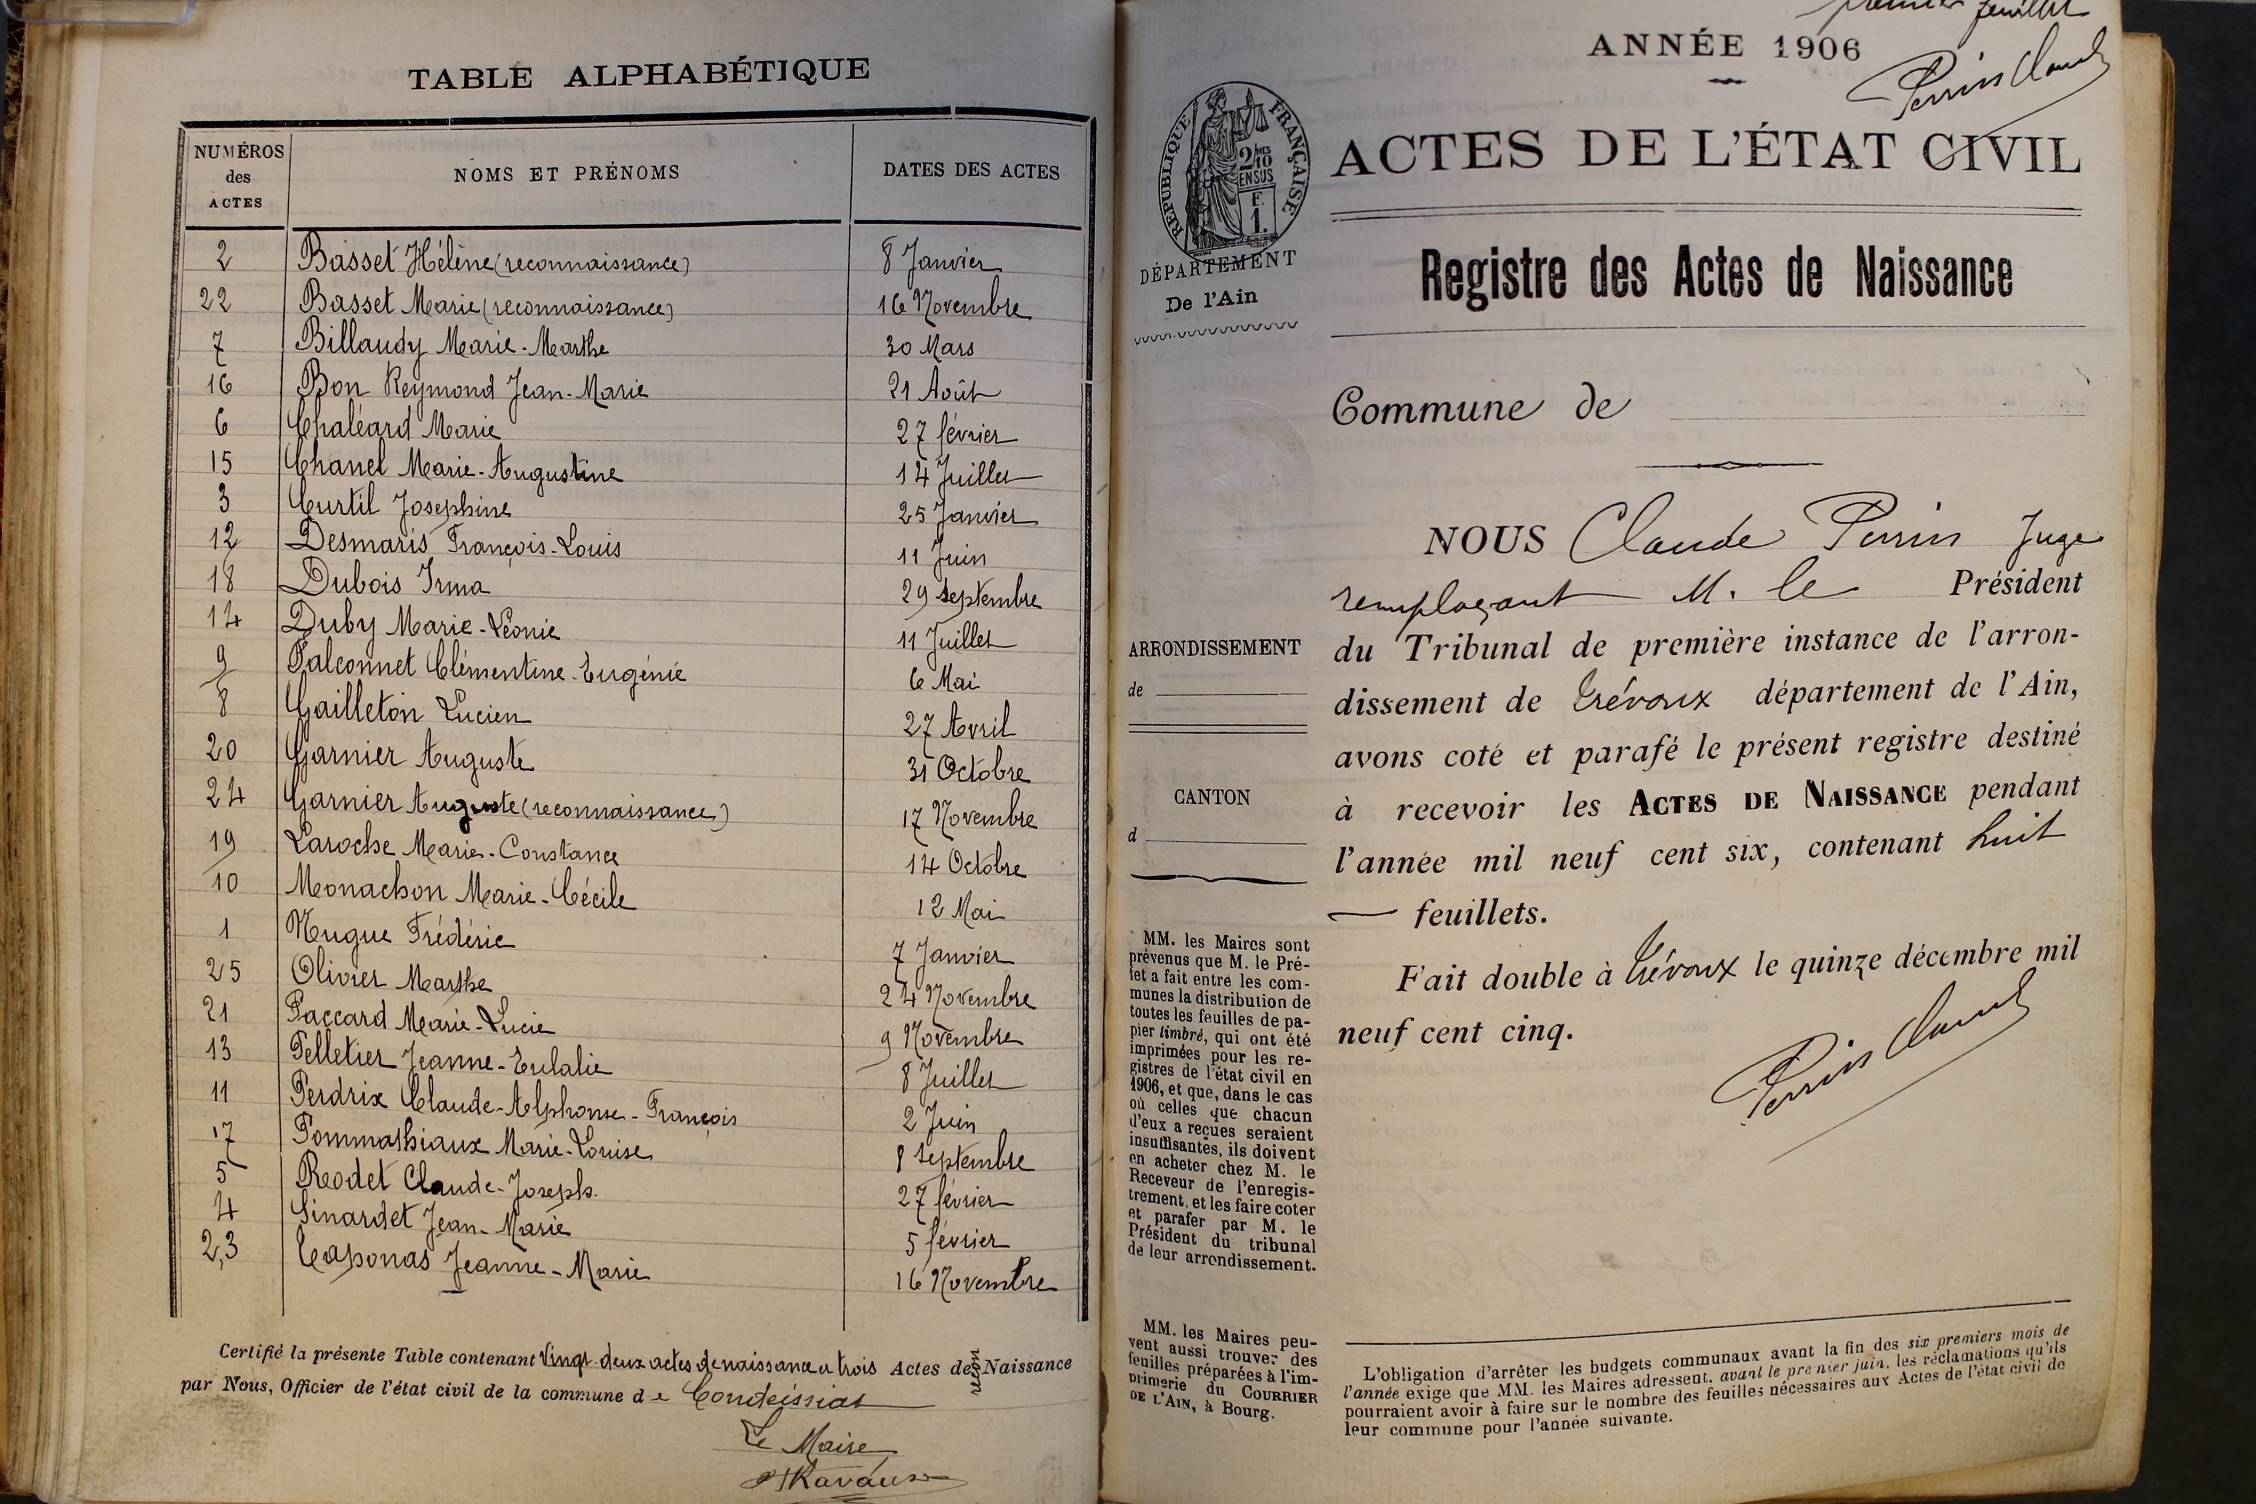 TABLE ALPHABÉTIQUE
NUMÉROS des ACTES NOMS ET PRÉNOMS DATES DES ACTES
2 Basset Hélène (reconnaissance) 8 Janvier
22 Basset Marie (reconnaissance) 16 Novembre
7 Billaudy Marie-Marthe 30 Mars
16 Bon Reymond Jean-Marie 21 Août
6 Chaléard Marie 27 février
15 Chanel Marie-Augustine 14 Juillet
3 Curtil Josephine 25 Janvier
12 Desmaris François-Louis 11 Juin
18 Dubois Irma 29 septembre
14 Duby Marie-Léonie 11 Juillet
9 Falconnet Clémentine-Eugénie 6 Mai
8 Gailleton Lucien 27 Avril
20 Garnier Auguste 31 Octobre
24 Garnier Auguste (reconnaissance) 17 Novembre
19 Laroche Marie-Constance 14 Octobre
10 Monachon Marie-Cécile 12 Mai
1 Nugue Frédéric 7 Janvier
25 Olivier Marthe 24 Novembre
21 Paccard Marie-Lucie 9 Novembre
13 Pelletier Jeanne-Eulalie 8 Juillet
11 Perdrix Claude-Alphonse-François 2 Juin
17 Pommathiaux Marie-Louise 8 septembre
5 Rodet Claude-Joseph. 27 février
4 Sinardet Jean-Marie 5 février
23 Taponas Jeanne-Marie 16 Novembre
Certifié la présente Table contenant Vingt-deux actes de naissance et trois Actes de recon Naissance
par Nous, Officier de l'état civil de la commune de Condeissiat
Le Maire
premier feuillet
ANNÉE 1906
Perrin Claude
ACTES DE L'ÉTAT CIVIL
RÉPUBLIQUE FRANÇAISE
2/10 EN SUS
F. 1.
DÉPARTEMENT
De l'Ain
Registre des Actes de Naissance
Commune de
NOUS Claude Perrin Juge
remplaçant M. le Président
du Tribunal de première instance de l'arron-
dissement de Trévoux département de l'Ain,
avons coté et parafé le présent registre destiné
à recevoir les ACTES DE NAISSANCE pendant
l'année mil neuf cent six, contenant huit
feuillets.
Fait double à Trévoux le quinze décembre mil
neuf cent cinq.
Perrin Claude
ARRONDISSEMENT
de
CANTON
d
MM. les Maires sont
prévenus que M. le Pré-
fet a fait entre les com-
munes la distribution de
toutes les feuilles de pa-
pier timbré, qui ont été
imprimées pour les re-
gistres de l'état civil en
1906, et que, dans le cas
où celles que chacun
d'eux a reçues seraient
insuffisantes, ils doivent
en acheter chez M. le
Receveur de l'enregis-
trement, et les faire coter
et parafer par M. le
Président du tribunal
de leur arrondissement.
MM. les Maires peu-
vent aussi trouver des
feuilles préparées à l'im-
primerie du COURRIER
DE L'AIN, à Bourg.
L'obligation d'arrêter les budgets communaux avant la fin des six premiers mois de
l'année exige que MM. les Maires adressent, avant le premier juin, les réclamations qu'ils
pourraient avoir à faire sur le nombre des feuilles nécessaires aux Actes de l'état civil de
leur commune pour l'année suivante.